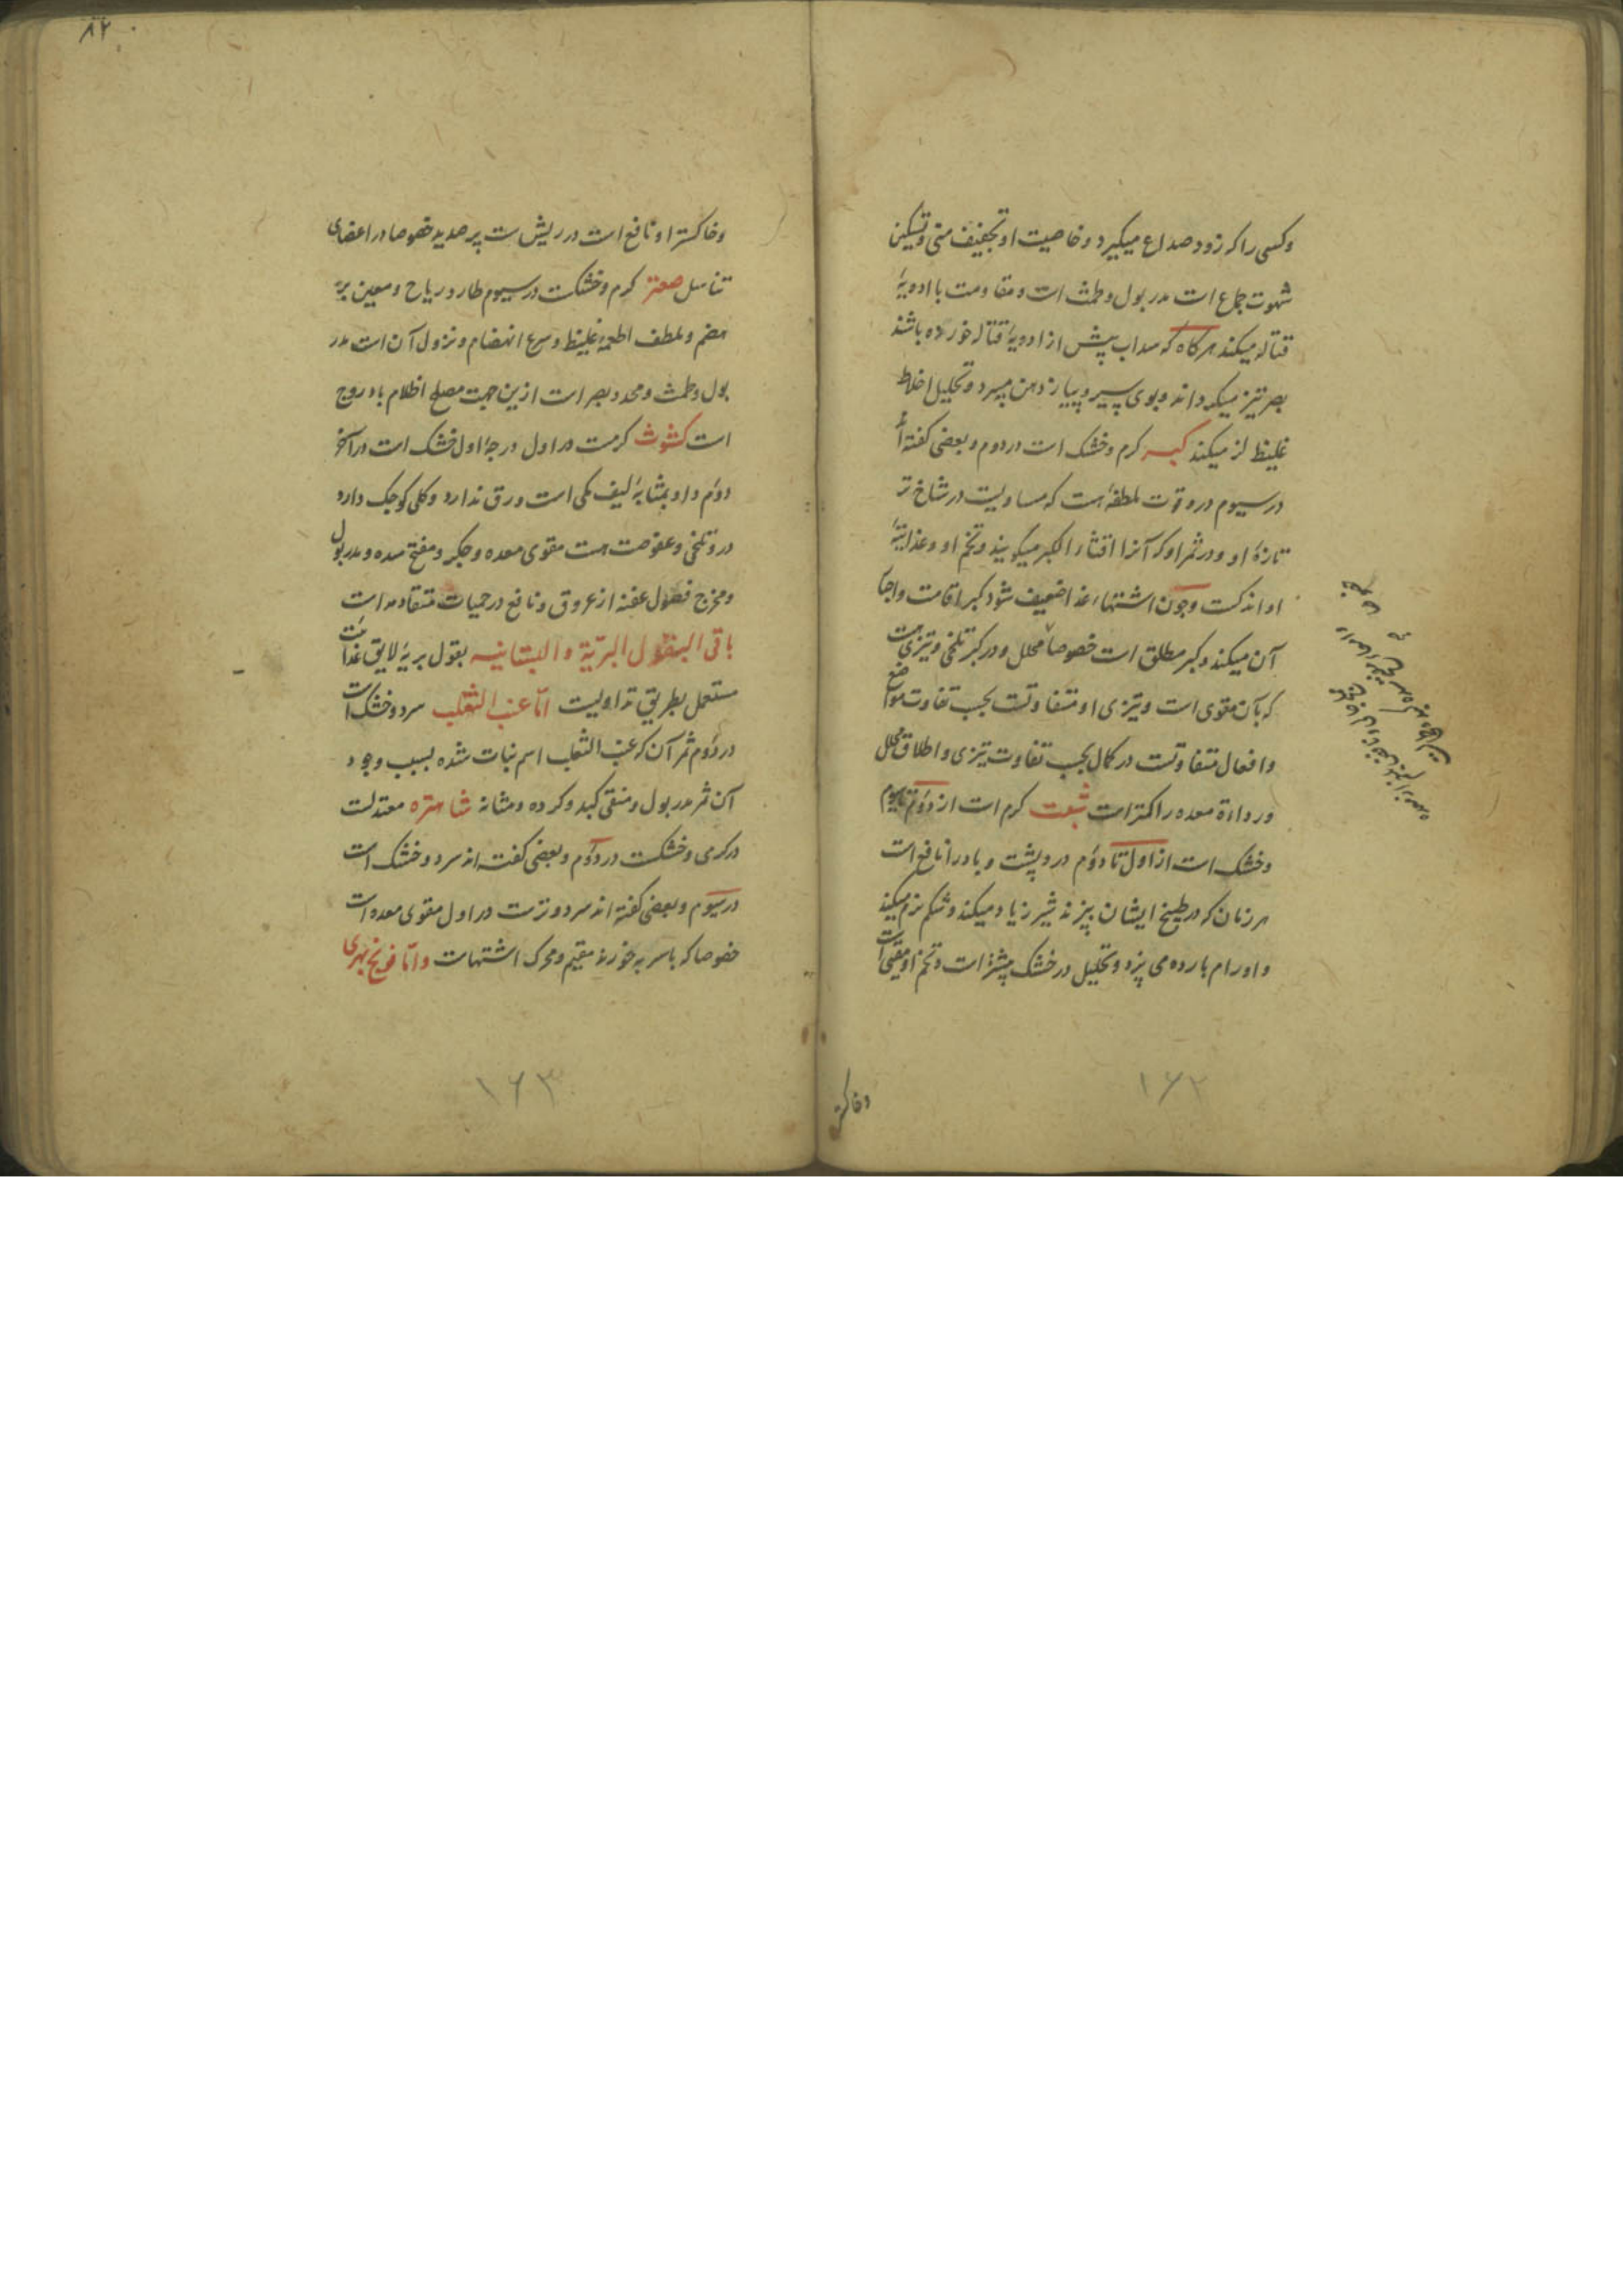 وکسی را که زود صداع میکیرد و خاصیت او تجفیف منی و تسکین
شهوت جماع است مدر بول و طمث است و مقاومت با ادویهٔ
قتاله میکند هرکاه که سداب پیش از ادویهٔ قتاله خورده باشند
بصر تیز میکرداند و بوی سیر و پیاز از دهن میبرد و تحلیل اخلاط
غلیظ لزج میکند کبر کرم و خشک است در دوم و بعضی کفته‌اند
در سیوم در و قوت ملطفه هست که مساویست در شاخ تر
تازهٔ او و در ثمر او که آنرا اقثاء الکبر میکویند و تخم او و غذائیة
او اندکست و چون اشتهاء غذا ضعیف شود کبر اقامت و احیا
آن میکند و کبر مطلق است خصوصا مخلل و در کبر تلخی و تیزی هست
که بآن مقوی است و تیزی او متفاوتست بحسب تفاوت مواضع
و افعال متفاوتست در کمال بحسب تفاوت تیزی و اطلاق مخلل
و رداءة معده را کمتر است شبت کرم است از دوم تا سیوم
و خشک است از اول تا دوم درد پشت و باد را نافع است
هر زنان که در طبیخ ایشان بپزند شیر زیاد میکند و شکم نرم میکند
و اورام بارده می پزد و تحلیل در خشک بیشتر است و تخم او مقیی است
وخاکستر
۱۶۲
۸۲
و خاکستر او نافع است در ریش ست پر صدید خصوصا در اعضای
تناسل صعتر کرم و خشکست در سیوم طارد ریاح و معین بر
هضم و ملطف اطعمهٔ غلیظ و سرع انهضام و نزول آن است مدر
بول و طمث و محد بصر است ازین جهت مصلح اظلام بادروج
است کشوث کرمست در اول درجهٔ اول خشک است در آخر
دوم و او بمثابهٔ لیف مکی است ورق ندارد و کلی کوچک دارد
در و تلخی و عفوصت هست مقوی معده و جکر و مفتح سده و مدر بول
و مخرج فضول عفنه از عروق و نافع در حمیات متقادمه است
باقی البقول البریّة و البستانیه بقول بریه لایق غذائیت
مستعمل بطریق تداویست امّا عنب الثعلب سرد و خشک است
در دوم ثمر آن که عنب الثعلب اسم نبات شده بسبب وجود
آن ثمر مدر بول و منقی کبد و کرده و مثانه شاهتره معتدلست
در کرمی و خشکست در دوم و بعضی کفته‌اند سرد و خشک است
در سیوم و بعضی کفته‌اند سرد و ترست در اول مقوی معده است
خصوصا که با سرکه خورند مقیم و محرک اشتهاست و امّا فوتنج نهری
۱۶۳